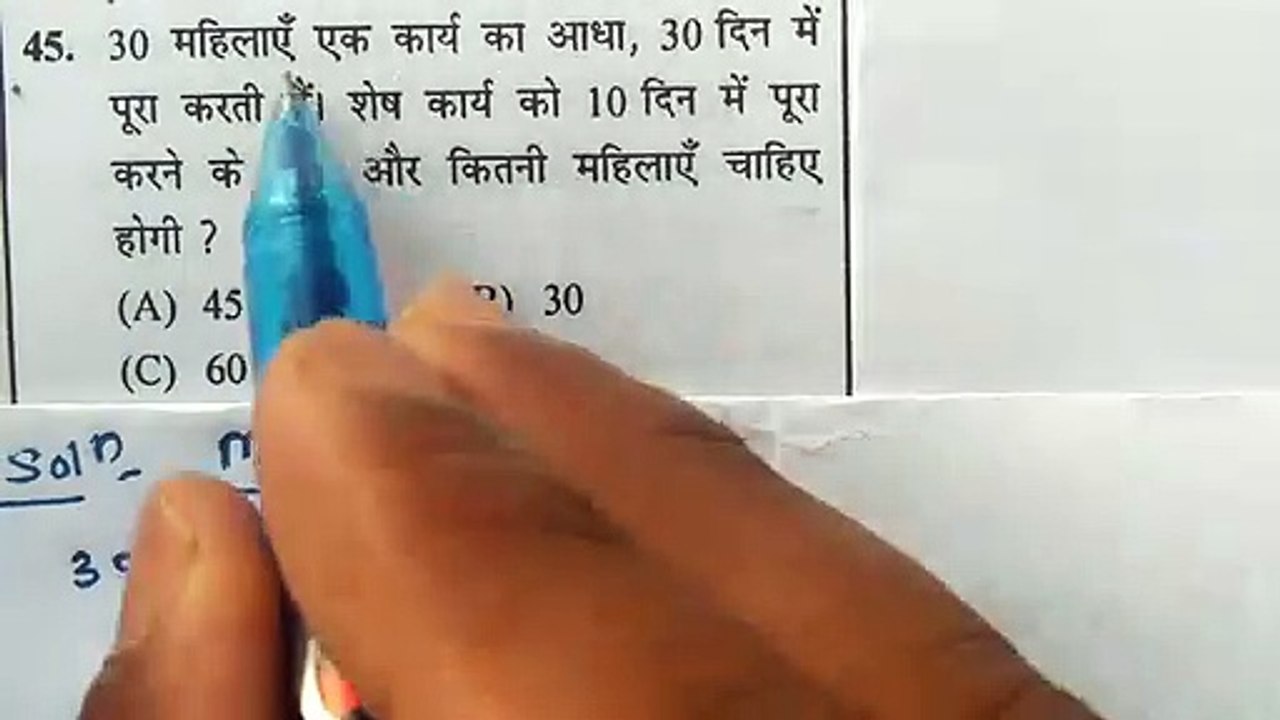 45. 30 महिलाएँ एक कार्य का आधा, 30 दिन में
पूरा करती शेष कार्य को 10 दिन में पूरा
करने के और कितनी महिलाएँ चाहिए
होगी ?
(A) 45 30
(C) 60
Soln